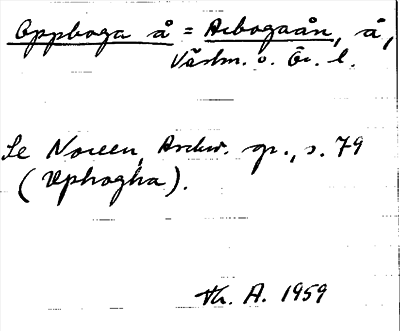 Oppboga å = Arbogaån, å,
Västm. o. Ör. l.
Se Noreen, Ardw. gr., s. 79
(Vphogha).
Th. A. 1959